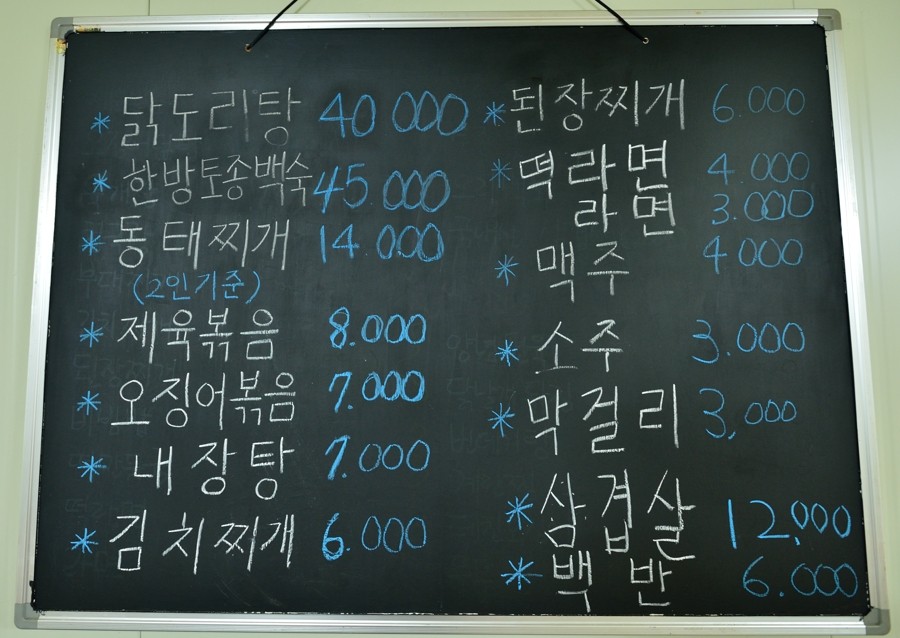 * 닭도리탕 40 000
* 한방토종백숙 45.000
* 동태찌개 14.000
(2인기준)
* 제육볶음 8.000
* 오징어볶음 7.000
* 내장탕 7.000
* 김치찌개 6.000
* 된장찌개 6.000
* 떡라면 4.000
라면 3.000
* 맥주 4.000
* 소주 3.000
* 막걸리 3,000
* 삼겹살 12,000
* 백반 6.000